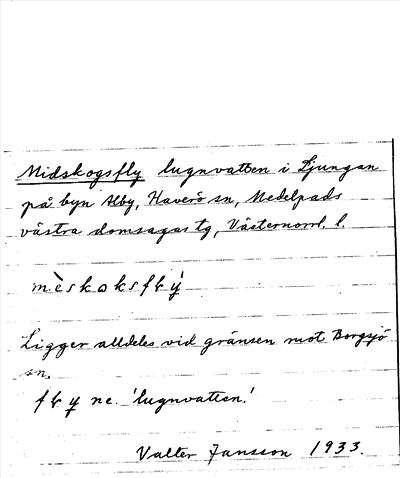 Midskogsfly lugnvatten i Ljungan
på byn Alby, Haverö sn, Medelpads
västra domsagas tg, Västernorrl. l.
mèskoksfɫy̗
Ligger alldeles vid gränsen mot Borgsjö
sn.
fɫy ne. 'lugnvatten.'
Valter Jansson 1933.